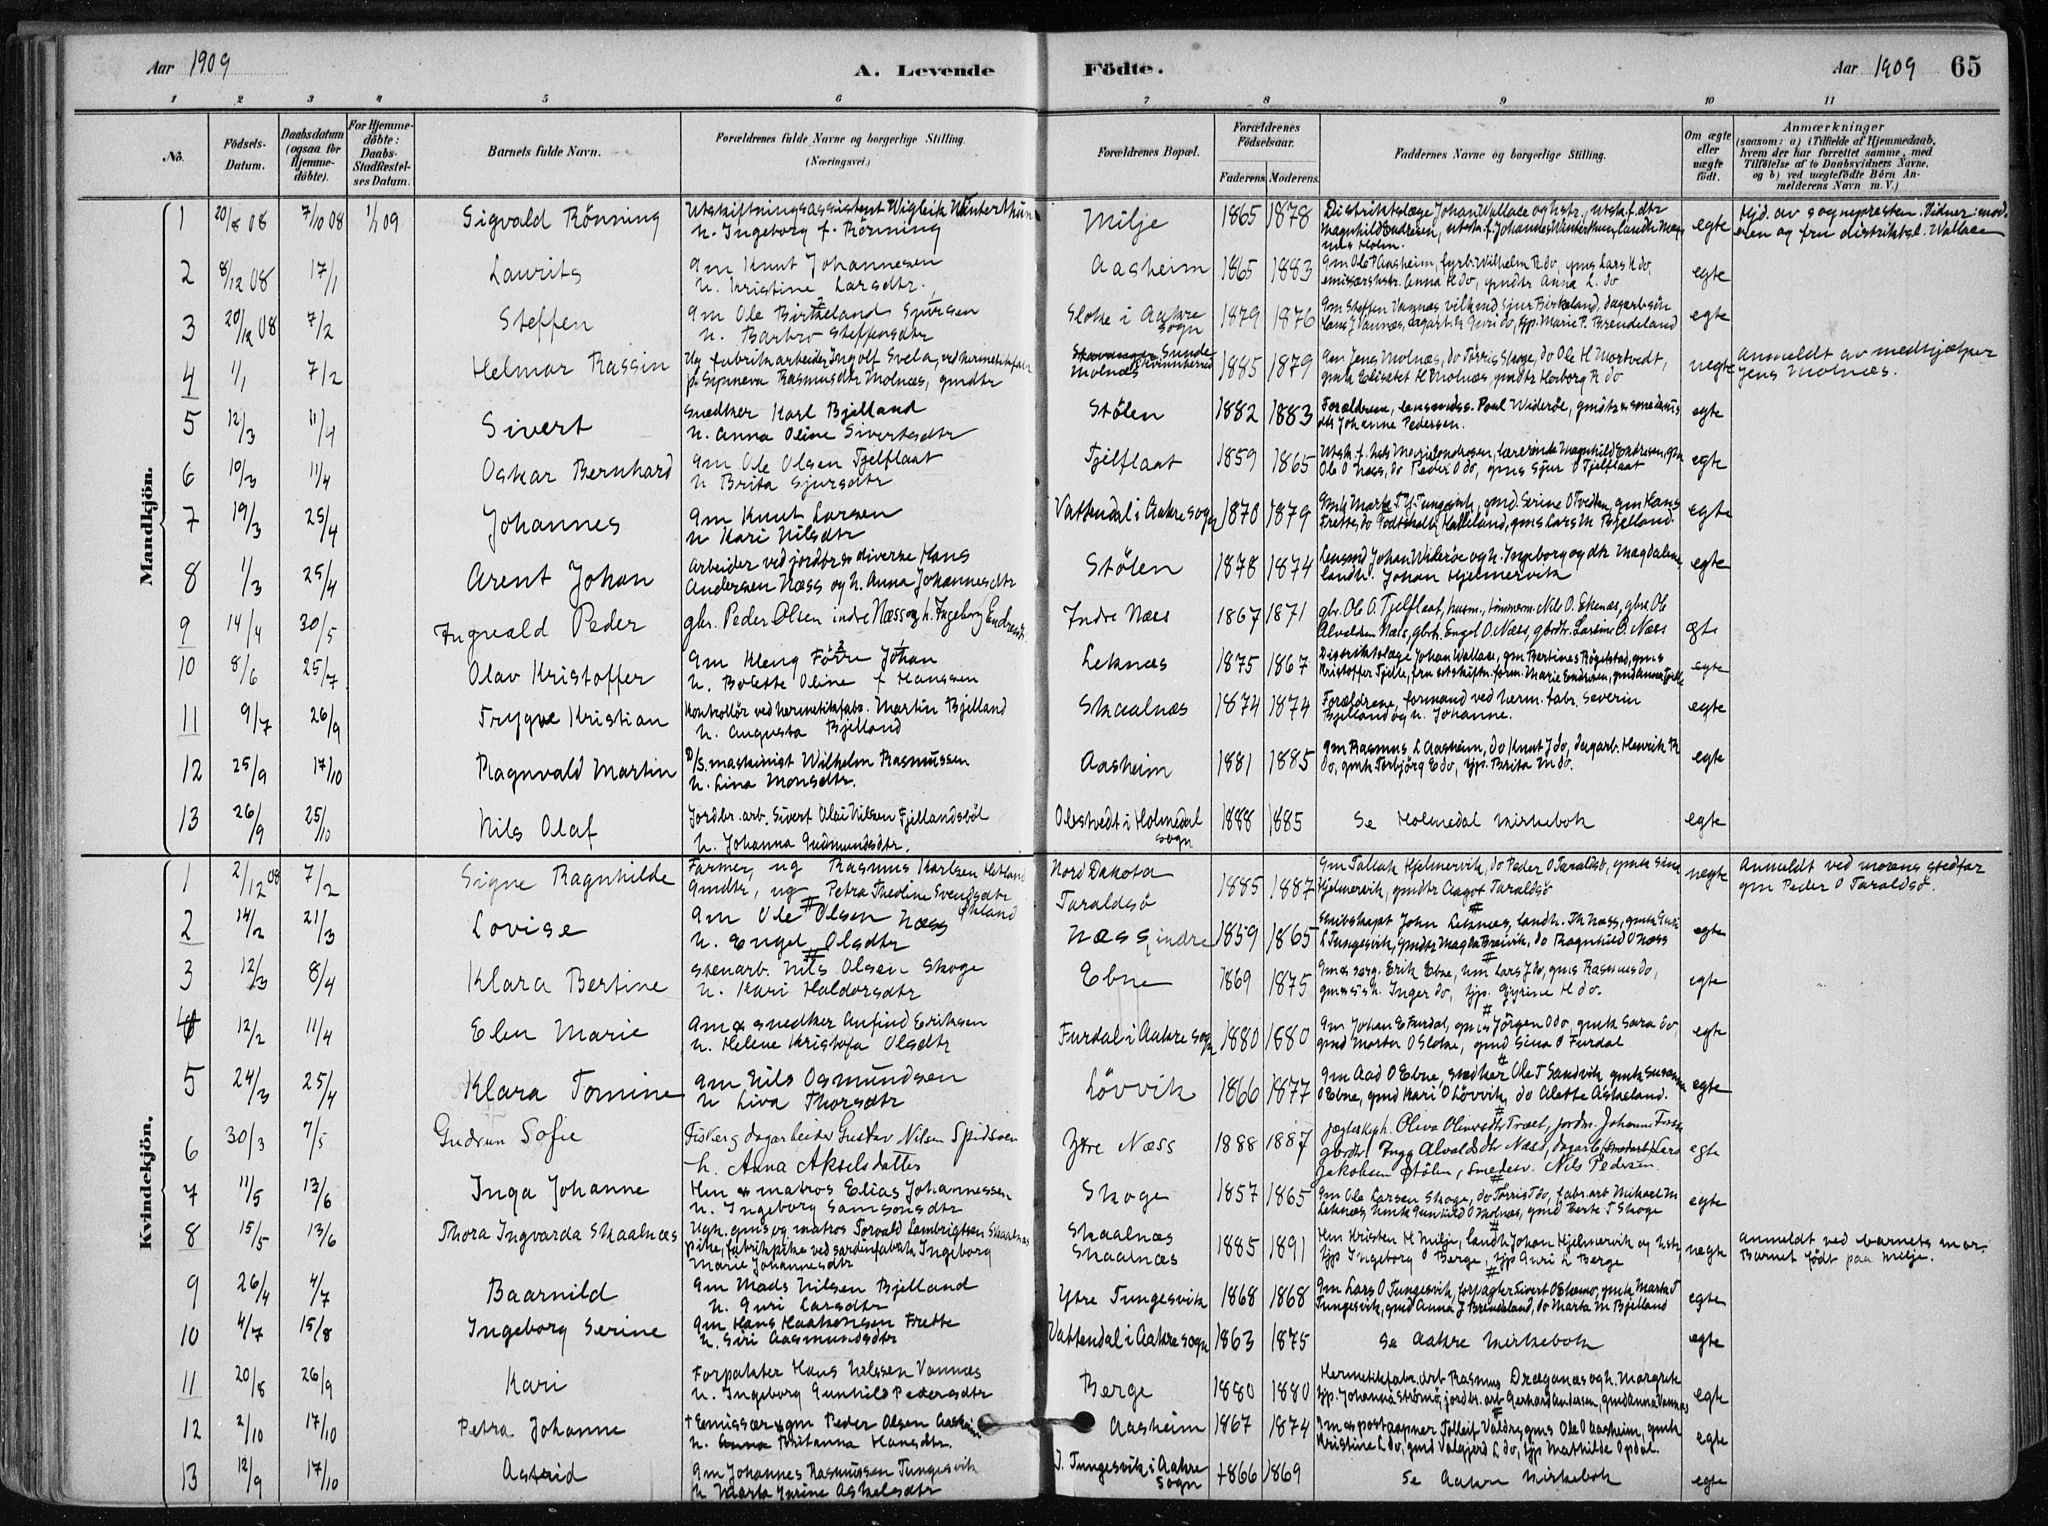 Aar 1909
A. Levende Födte.
Aar 1909 65
1 2 3 4 5 6 7 8 9 10 11
No.
Födsels-Datum.
Daabsdatum (ogsaa for Hjemme-döbte).
For Hjemme-döbte: Daabs-Stadfæstel-ses Datum.
Barnets fulde Navn.
Forældrenes fulde Navne og borgerlige Stilling. (Næringsvei.)
Forældrenes Bopæl.
Forældrenes Födselsaar.
Faderens. Moderens.
Faddernes Navne og borgerlige Stilling.
Om ægte eller uægte födt.
Anmærkninger (saasom: a) i Tilfælde af Hjemmedaab, hvem der har forrettet samme, med Tilföielse af to Daabsvidners Navne, og b) ved uægtefödte Börn Anmelderens Navn m. V.)
Mandkjön.
1 20/8 08 7/10 08 1/1 09 Sigvald Rönning Utskiftningsassistent Wiglik Winterthun
h. Ingeborg f. Rönning Milje 1865 1878 egte Hjd. av sognepresten. Vidner: mod-
eren og fru distriktsl. Wallace
2 8/12 08 17/1 Laurits Gm Knut Johannesen
h. Kristine Larsdtr. Aasheim 1865 1883 Gm Ole P Aasheim, fyrb. Wilhelm R do, gms Lars K do,
Anna H do, gmdtr Anna L. do egte
3 20/12 08 7/2 Steffen Gm Ole Birkeland Sjursen
h. Barbro Steffensdtr Sloke i Aakre sogn 1879 1876 egte
4 1/1 7/2 Helmar Rassin Ug fabrikarbeider Ingolf Svela, ved hermetikfabr
p. Synneva Rasmusdtr Molnæs, gmdtr Molnæs 1885 1879 Gm Jens Molnæs, do Tørris Skoge, do Ole H Mortvedt,
gmk Elisabet H Molnæs, gmdtr Herborg R do uegte Anmeldt av medhjælper
Jens Molnæs.
5 12/3 11/4 Sivert Snedker Karl Bjelland
h. Anna Oline Sivertsdtr Stølen 1882 1883 Forældrene, lensmdss. Paul Widerøe,
Johanne Pedersen. egte
6 10/3 11/4 Oskar Bernhard Gm Ole Olsen Tjelflaat
h Brita Sjursdtr Tjelflaat 1859 1865
Ole O Næss, do Peder O do, gms Sjur O Tjelflaat egte
7 19/3 25/4 Johannes Gm Knut Larsen
h Kari Nilsdtr Vattendal i Aakre sogn 1870 1879 gms Lars M Bjelland. egte
8 1/3 25/4 Arent Johan Arbeider ved jordbr & diverse Hans
Andersen Næss og h. Anna Johannesdtr Stølen 1878 1874 Lensmd Johan Widerøe og h. Ingeborg og dtr Magdalene
landh. Johan Hjelmervik egte
9 14/4 30/5 Ingvald Peder gbr. Peder Olsen indre Næss og h. Ingeborg Endresdtr. Indre Næs 1867 1871 gbr. Ole O. Tjelflaat, husm., tømmerm. Nils O. Ekenæs, gbr. Ole
Alvaldsen Næss, gbrdtr. Engel O. Næss, gbrdtr. Lavine O. Næss egte
10 8/6 25/7 Olav Kristoffer Gm Kleng Förre Johan
h. Bolette Oline f Hanssen Leknæs 1875 1867 Distriktslæge Johan Wallace, egte
11 9/7 26/9 Trygve Kristian Kontrollör ved hermetikfabr. Martin Bjelland
h. Augusta Bjelland Skaalnæs 1874 1874 Forældrene, formand ved herm. fabr. Severin
Bjelland og h. Johanne. egte
12 25/9 17/10 Ragnvald Martin D/S. maskinist Wilhelm Rasmussen
h. Lina Monsdtr. Aasheim 1881 1885 Gm Rasmus L Aasheim, do Knut J do, dagarb. Henrik R
do, gmk Torbjörg E do, tjp. Brita M do. egte
13 26/9 25/10 Nils Olaf Jordbr. arb. Sivert Olai Nilsen Fjellandsböl
h. Johanna Gudmundsdtr. Olestvedt i Holmedal sogn 1888 1885 Se Holmedal kirkebok egte
Kvindekjön.
1 2/12 08 7/2 Signe Ragnhilde Farmer, ug Rasmus Karlsen Hetland
Gmdtr, ug Petra Theoline Svendsdtr Nord Dakota
Taraldsö 1885 1887 Gm Tallak Hjelmervik, do Peder O Taraldsö, gmk Sina
Hjelmervik, gmdtr Aagot Taraldsö uegte Anmeldt ved morens stedfar
gm Peder O Taraldsö.
2 14/2 21/3 Lovise Gm Ole Olsen Næss
h. Engel Olsdtr Næss, indre 1859 1865 Skibskapt John Leknæs, landh. Th Næss, gmk Guri
L Tungesvik, gmdtr Magla Breivik, do Ragnhild O Næss egte
3 12/3 8/4 Klara Bertine Stenarb. Nils Olsen Skoge
h. Kari Haldorsdtr Ebne 1869 1875 Erik Ebne, Lars J do, gms Rasmus do,
Inger do, tjp. Gyrine H do. egte
4 12/2 11/4 Elen Marie Gm & snedker Anfind Eriksen
h. Helene Kristofa Olsdtr Furdal i Aakre sogn 1880 1880 Gm Johan E Furdal, gms Jörgen O do, gmk Sara do,
gmd Marta O Sloke, gmd Sina O Furdal egte
5 24/3 25/4 Klara Tomine Gm Nils Osmundsen
h Liva Thorsdtr Lövvik 1866 1877 Gm Aad O Ebne, snedker Ole T Sandvik, gmk Susanna
O Ebne, gmd Kari O Lövvik, do Alette Askeland. egte
6 30/3 7/5 Gudrun Sofie Fisker & dagarbeider Gustav Nilsen Spidsøen
h. Anna Akselsdatter Ytre Næss 1888 1887
Jakobsen Stølen, Smedesv. Nils Pedersen egte
7 11/5 13/6 Inga Johanne Hm & matros Elias Johannessen
h. Ingeborg Samsonsdtr Skoge 1857 1865 Gm Ole Larsen Skoge, do Tørris T do, fabr. arb Mikael M
Leknæs, hmk Gunhild O Molnæs, gmd Berte T Skoge egte
8 15/5 13/6 Thora Ingvarda Skaalnæs Ugk. gms og matros Torvald Lambrigtsen Skaalnæs
pike, fabrikpike ved sardinfabrik Ingeborg
Marie Johannesdtr Skaalnæs
Skaalnæs 1885 1891 Hm Kristen H Milje, landh Johan Hjelmervik og hstr,
tjp Ingeborg O Berge, tjp Guri L Berge uegte Anmeldt ved barnets mor.
Barnet født paa Milje.
9 26/4 4/7 Baarnild Gm Mads Nilsen Bjelland
h. Guri Larsdtr Ytre Tungesvik 1868 1868 Gm Lars O Tungesvik, forpagter Sivert O Stumo, gmk Marta T
Tungesvik, gmd Anna J Brendeland, do Marta M Bjelland egte
10 4/7 15/8 Ingeborg Serine Gm Hans Haakonsen Frette
h. Siri Aasmundsdtr Vattendal i Aakre sogn 1863 1875 Se Aakre kirkebok egte
11 20/8 26/9 Kari Forpakter Hans Nilssen Vannæs
h. Ingeborg Gunhild Pedersdtr Berge 1880 1880 Hermetikfabr. arb Rasmus Drægenæs og h. Margrete
tjp. Johanna Strömö, jordbr. arb Gerhard Andersen, gmd Anna Vannæs egte
12 2/10 17/10 Petra Johanne + Emissær & gm Peder Olsen Aasheim
h. Britanna Hansdtr. Aasheim 1867 1874 Gm & postaapner Tolleif Valdres, gms Ole O Aasheim, gmk
Kristine L do, gmd Valgjerd L do, tjp Mathilde Opdal. egte
13 12/9 17/10 Astrid Gm Johannes Rasmussen Tungesvik
h Marta Gurine Askelsdtr I. Tungesvik i Aakre sogn 1866 1869 Se Aakre kirkebok egte